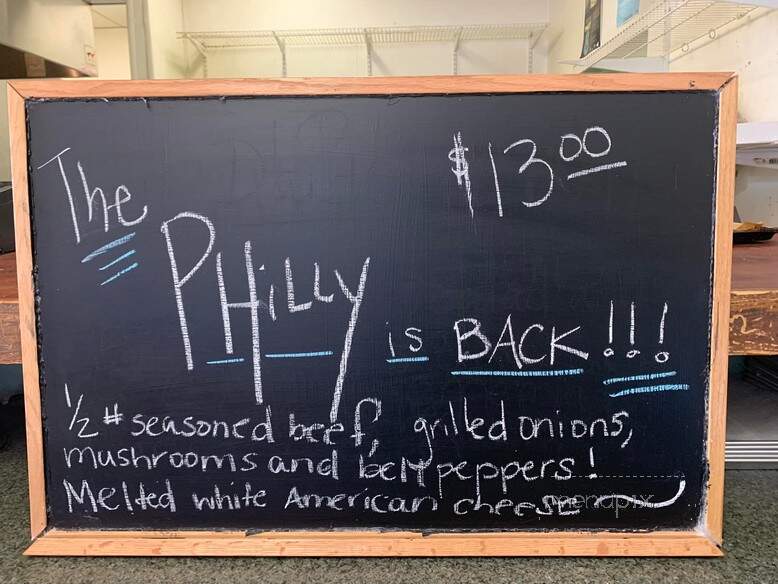 The
$13.00
PHiLLY is BACK!!!
1/2 # seasoned beef, grilled onions,
mushrooms and bell peppers!
Melted white American cheese
menupix